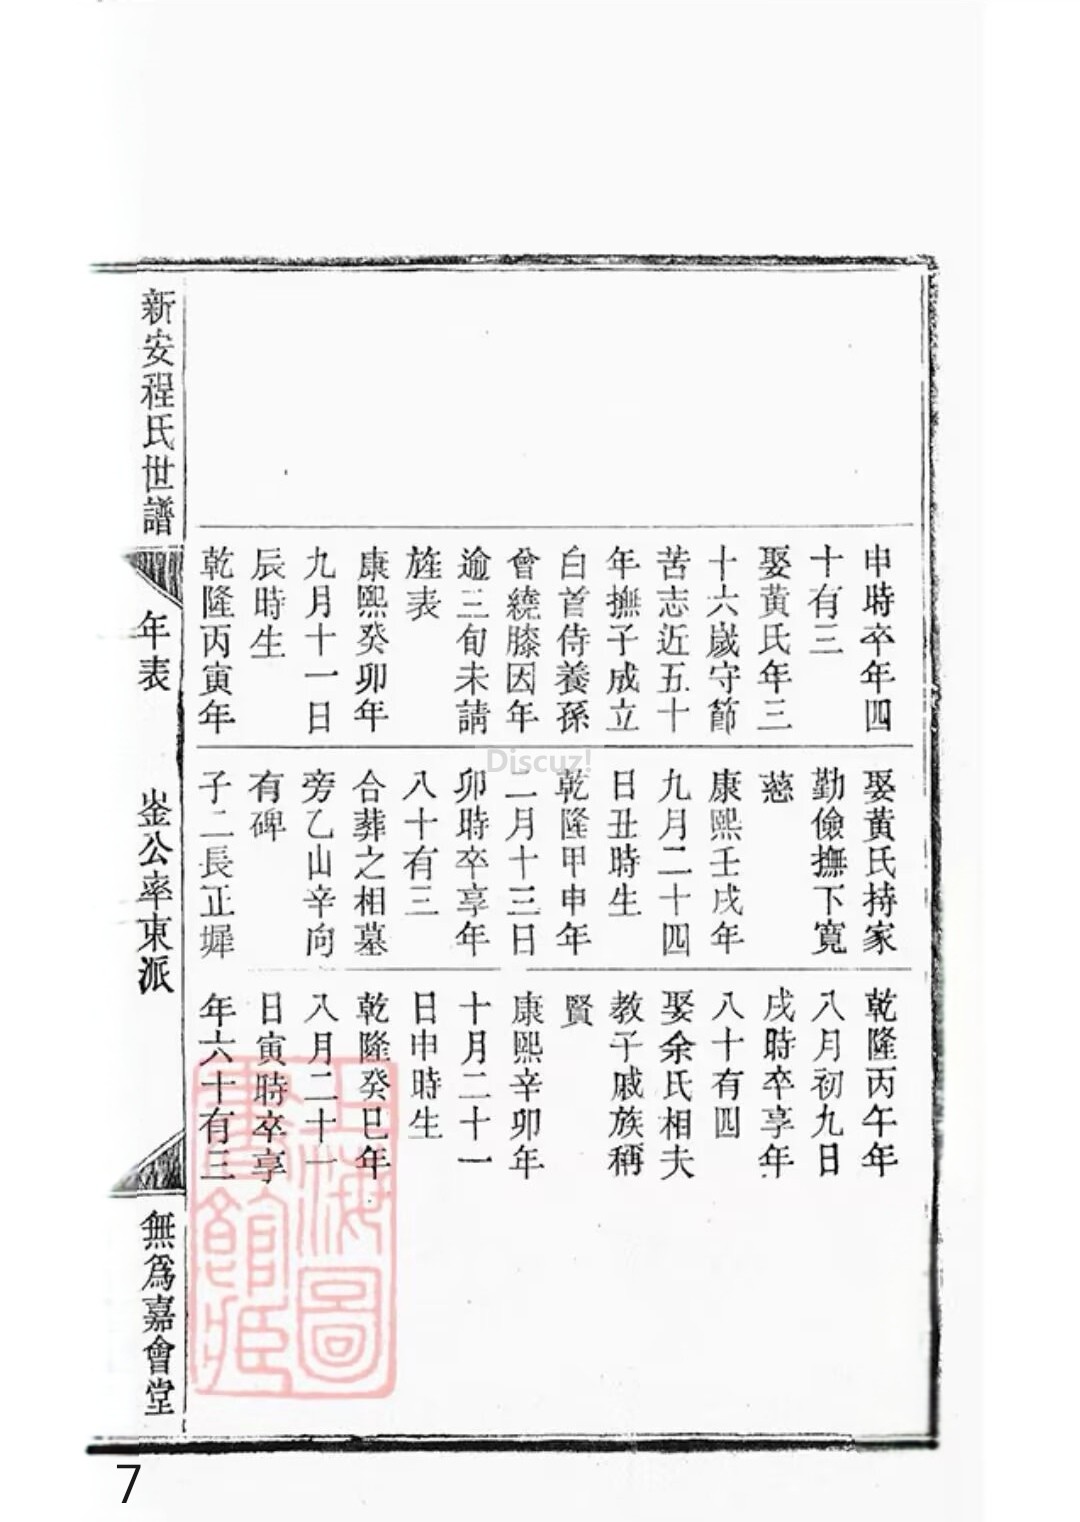 申時卒年四
十有三
娶黃氏年三
十六歲守節
苦志近五十
年撫子成立
白首侍養孫
曾繞膝因年
逾三旬未請
旌表
康熙癸卯年
九月十一日
辰時生
乾隆丙寅年
娶黃氏持家
勤儉撫下寬
慈
康熙壬戌年
九月二十四
日丑時生
乾隆甲申年
二月十三日
卯時卒享年
八十有三
合葬之相墓
旁乙山辛向
有碑
子二長正墀
乾隆丙午年
八月初九日
戌時卒享年
八十有四
娶余氏相夫
教子戚族稱
賢
康熙辛卯年
十月二十一
日申時生
乾隆癸巳年
八月二十一
日寅時卒享
年六十有三
新安程氏世譜
年表
崟公率東派
無為嘉會堂
上海圖
書館藏
Discuz!
7